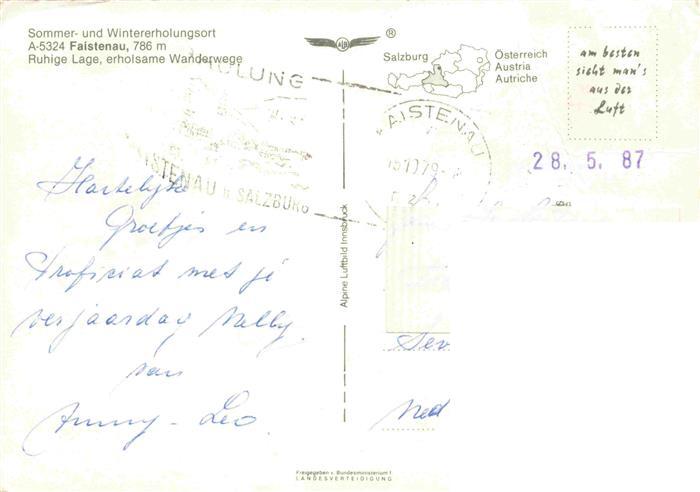 Sommer- und Wintererholungsort
A-5324 Faistenau, 786 m
Ruhige Lage, erholsame Wanderwege
HOLUNG
ISTENAU B. SALZBURG
Hartelyke
Groetjes en
Proficiat met je
verjaardag Nelly
van
Anny - Leo
Alpine Luftbild Innsbruck
®
Salzburg
Österreich
Austria
Autriche
am besten
sieht man's
aus der
Luft
FAISTENAU
28. 5. 87
Ned
Freigegeben v. Bundesministerium f.
LANDESVERTEIDIGUNG